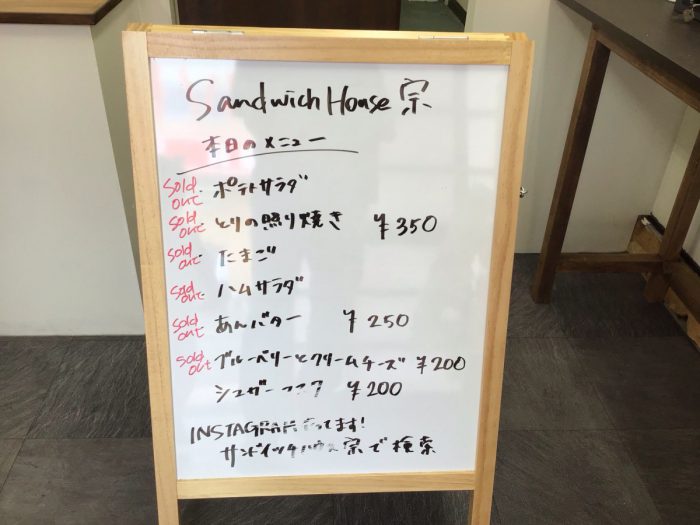 Sandwich House 宗
本日のメニュー
Sold out ・ポテトサラダ
Sold out ・とりの照り焼き ¥350
Sold out ・たまご
Sold out ・ハムサラダ
Sold out ・あんバター ¥250
Sold out ・ブルーベリーとクリームチーズ ¥200
シュガー ¥200
INSTAGRAM やってます!
サンドイッチハウス宗で検索